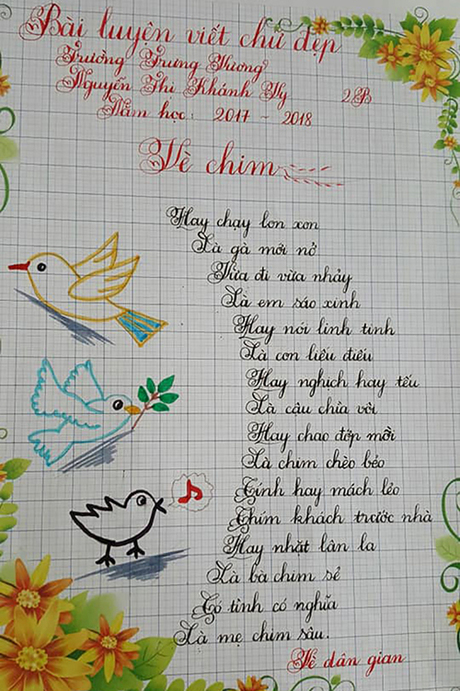 Bài luyện viết chữ đẹp
Trường Trưng Vương
Nguyễn Thị Khánh Vy 2B
Năm học: 2017 - 2018
Vè chim
Hay chạy lon xon
Là gà mới nở
Vừa đi vừa nhảy
Là em sáo xinh
Hay nói linh tinh
Là con liếu điếu
Hay nghịch hay tếu
Là cậu chìa vôi
Hay chao đớp mồi
Là chim chèo bẻo
Tính hay mách lẻo
Chim khách trước nhà
Hay nhặt lân la
Là bà chim sẻ
Có tình có nghĩa
Là mẹ chim sâu.
Vè dân gian